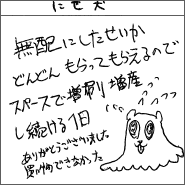 にせ犬
無配にしたせいか
どんどんもらってもらえるので
スペースで増刷り増産
し続ける1日
ありがとうございました。
買い物できなかった